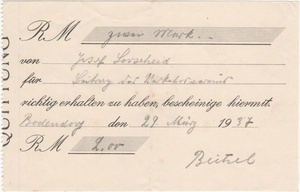 QUITTUNG
RM zwei Mark.
von Josef Lorscheid
für Beitrag des Verkehrsvereins
richtig erhalten zu haben, bescheinige hiermit.
Bodendorf den 29 März 1937
RM 2,00